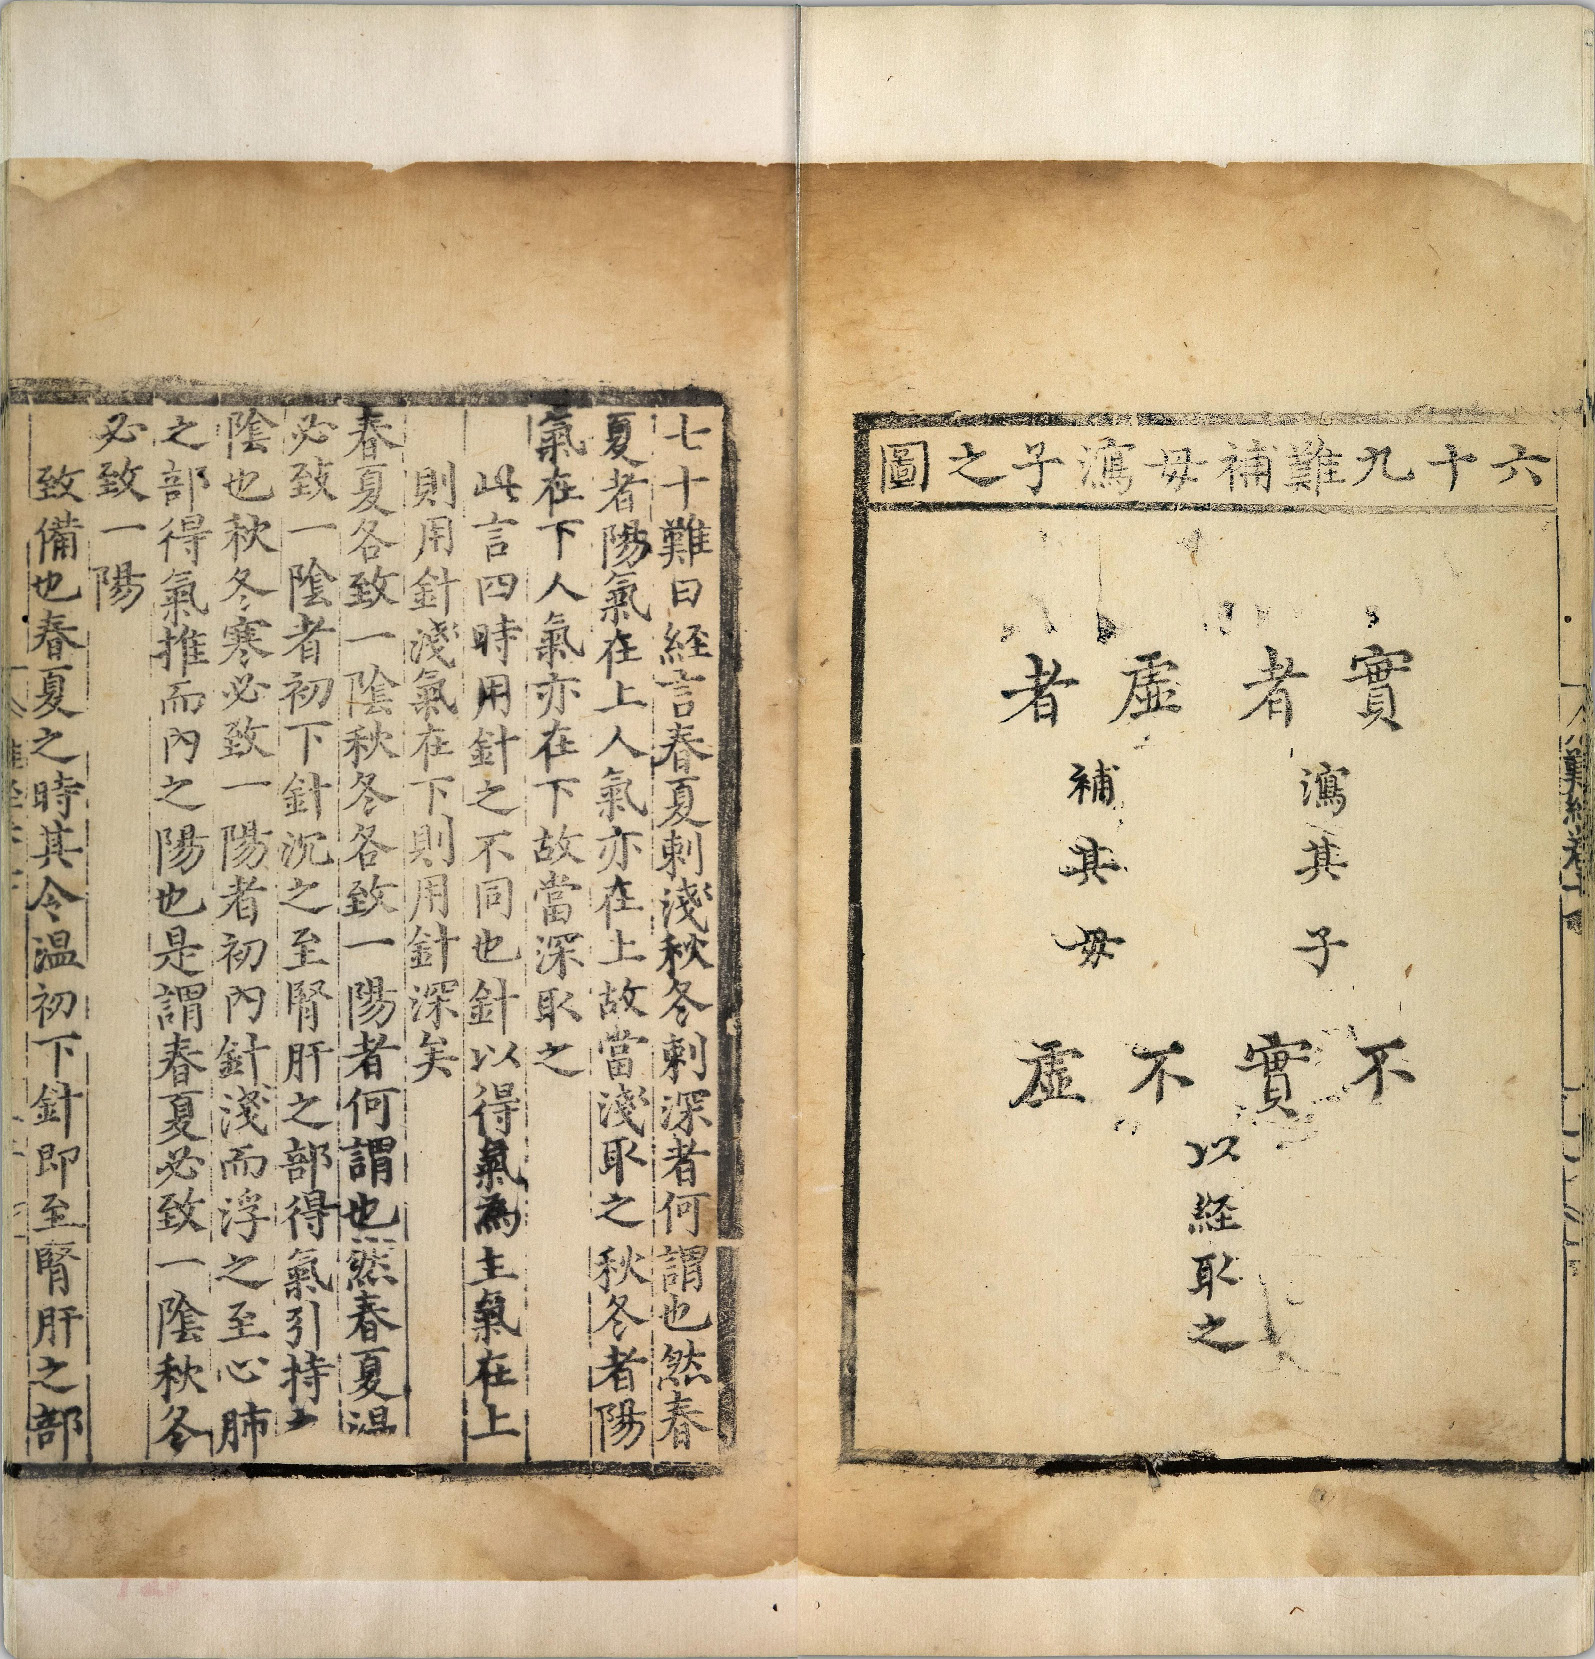 六十九難補毋瀉子之圖
實者
瀉其子
虛者
補其毋
不實
不虛
以経取之
難經卷
七十難曰経言春夏刺淺秋冬刺深者何謂也然春
夏者陽氣在上人氣亦在上故當淺取之秋冬者陽
氣在下人氣亦在下故當深取之
此言四時用針之不同也針以得氣為主氣在上
則用針淺氣在下則用針深矣
春夏各致一陰秋冬各致一陽者何謂也然春夏温
必致一陰者初下針沉之至腎肝之部得氣引持之
陰也秋冬寒必致一陽者初內針淺而浮之至心肺
之部得氣推而內之陽也是謂春夏必致一陰秋冬
必致一陽
致備也春夏之時其令温初下針即至腎肝之部